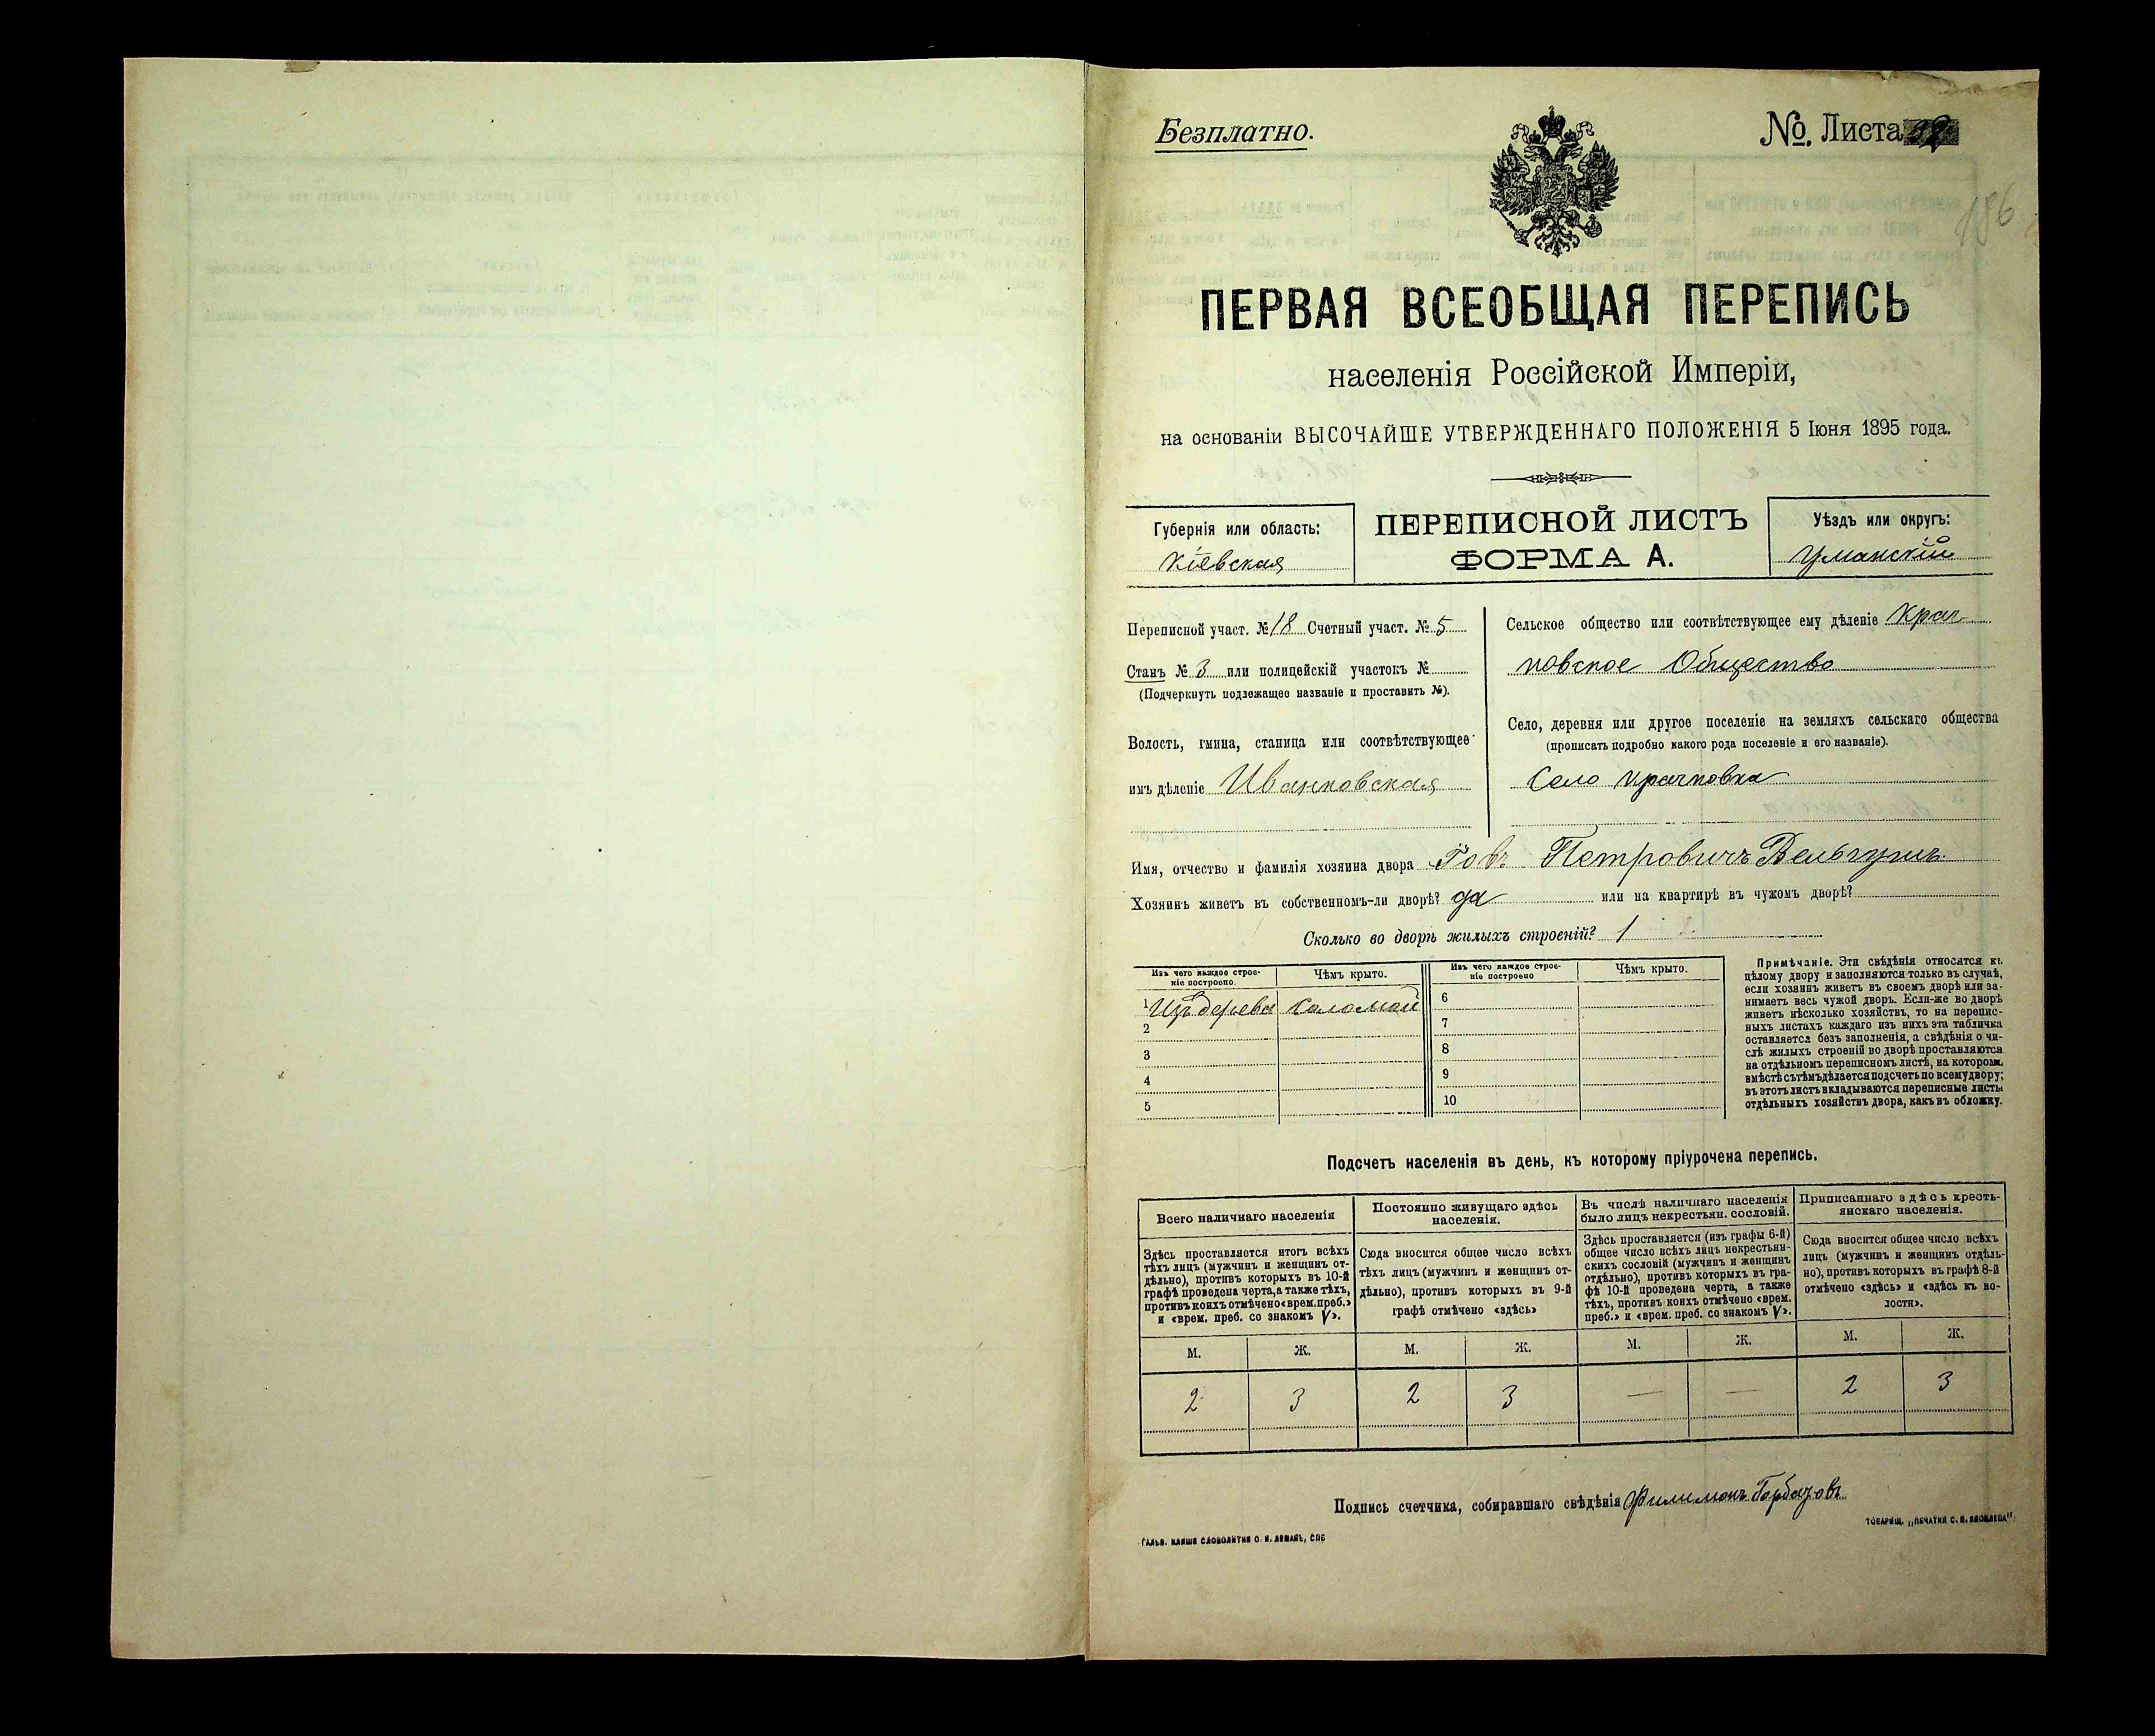 Безплатно.
№. Листа
186
ПЕРВАЯ ВСЕОБЩАЯ ПЕРЕПИСЬ
населенія Россійской Имперіи,
на основаніи ВЫСОЧАЙШЕ УТВЕРЖДЕННАГО ПОЛОЖЕНІЯ 5 Іюня 1895 года.
Губернія или область:
Кіевская
ПЕРЕПИСНОЙ ЛИСТЪ
ФОРМА А.
Уѣздъ или округъ:
Уманскій
Переписной участ. № 18 Счетный участ. № 5
Станъ № 3 или полицейскій участокъ №
(Подчеркнуть подлежащее названіе и проставить №).
Волость, гмина, станица или соотвѣтствующее
имъ дѣленіе Иванковская
Сельское общество или соотвѣтствующее ему дѣленіе Крач
ковское Общество
Село, деревня или другое поселеніе на земляхъ сельскаго общества
(прописать подробно какого рода поселеніе и его названіе).
Село Крачковка
Имя, отчество и фамилія хозяина двора Петровичъ
Хозяинъ живетъ въ собственномъ-ли дворѣ? да или на квартирѣ въ чужомъ дворѣ?
Сколько во дворѣ жилыхъ строеній? 1
Изъ чего каждое строе-
ніе построено.
Чѣмъ крыто.
Изъ чего каждое строе-
ніе построено
Чѣмъ крыто.
1 Изъ дерева Соломой
2
3
4
5
6
7
8
9
10
Примѣчаніе. Эти свѣдѣнія относятся къ
цѣлому двору и заполняются только въ случаѣ,
если хозяинъ живетъ въ своемъ дворѣ или за-
нимаетъ весь чужой дворъ. Если-же во дворѣ
живетъ нѣсколько хозяйствъ, то на перепис-
ныхъ листахъ каждаго изъ нихъ эта табличка
оставляется безъ заполненія, а свѣдѣнія о чи-
слѣ жилыхъ строеній во дворѣ проставляются
на отдѣльномъ переписномъ листѣ, на которомъ
вмѣстѣ съ тѣмъ дѣлается подсчетъ по всему двору;
въ этотъ листъ вкладываются переписные листы
отдѣльныхъ хозяйствъ двора, какъ въ обложку.
Подсчетъ населенія въ день, къ которому пріурочена перепись.
Всего наличнаго населенія
Здѣсь проставляется итогъ всѣхъ
тѣхъ лицъ (мужчинъ и женщинъ от-
дѣльно), противъ которыхъ въ 10-й
графѣ проведена черта, а также тѣхъ,
противъ коихъ отмѣчено «врем. преб.»
и «врем. преб. со знакомъ V».
Постоянно живущаго здѣсь
населенія.
Сюда вносится общее число всѣхъ
тѣхъ лицъ (мужчинъ и женщинъ от-
дѣльно), противъ которыхъ въ 9-й
графѣ отмѣчено «здѣсь»
Въ числѣ наличнаго населенія
было лицъ некрестьян. сословій.
Здѣсь проставляется (изъ графы 6-й)
общее число всѣхъ лицъ некрестьян-
скихъ сословій (мужчинъ и женщинъ
отдѣльно), противъ которыхъ въ гра-
фѣ 10-й проведена черта, а также
тѣхъ, противъ коихъ отмѣчено «врем.
преб.» и «врем. преб. со знакомъ V».
Приписаннаго здѣсь кресть-
янскаго населенія.
Сюда вносится общее число всѣхъ
лицъ (мужчинъ и женщинъ отдѣль-
но), противъ которыхъ въ графѣ 8-й
отмѣчено «здѣсь» и «здѣсь въ во-
лости».
М. Ж. М. Ж. М. Ж. М. Ж.
2 3 2 3 — — 2 3
Подпись счетчика, собиравшаго свѣдѣнія Филимонъ
ГАЛЬВ. КЛИШЕ СЛОВОЛИТНИ О. И. ЛЕМАНЪ, СПБ
ТОВАРИЩ. „ПЕЧАТНЯ С. П. ЯКОВЛЕВА“.